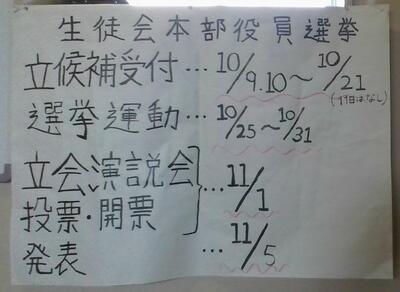 生徒会本部役員選挙
立候補受付…10/9.10～10/21
選挙運動…10/25～10/31
立会、演説会
投票・開票
…11/1
発表…11/5